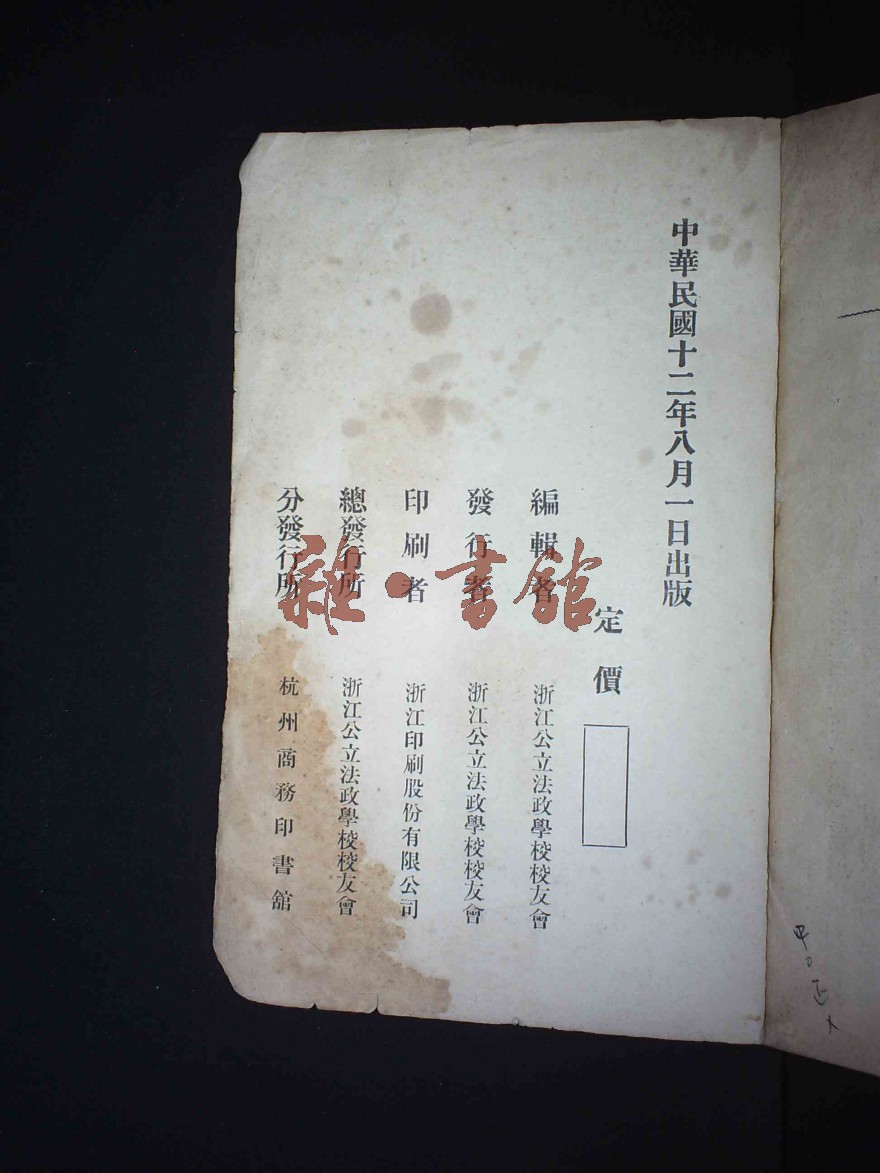 中華民國十二年八月一日出版
定價
編輯者 浙江公立法政學校校友會
發行者 浙江公立法政學校校友會
印刷者 浙江印刷股份有限公司
總發行所 浙江公立法政學校校友會
分發行所 杭州商務印書館
雜·書館